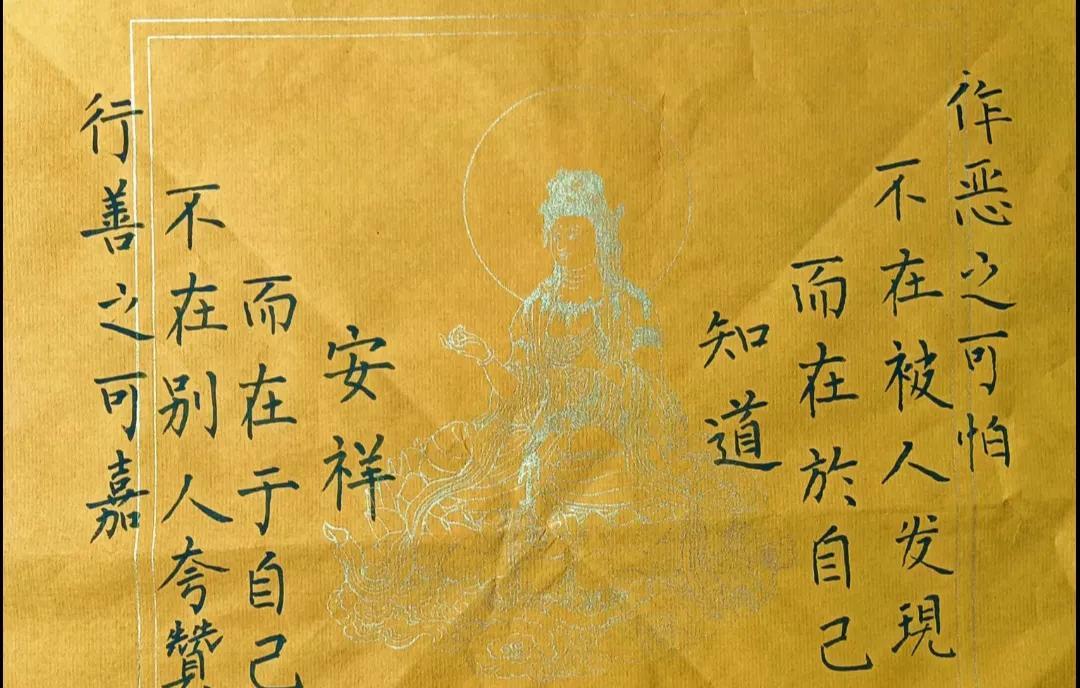 作恶之可怕
不在被人发現
而在於自己
知道
行善之可嘉
不在别人夸贊
而在于自己
安祥